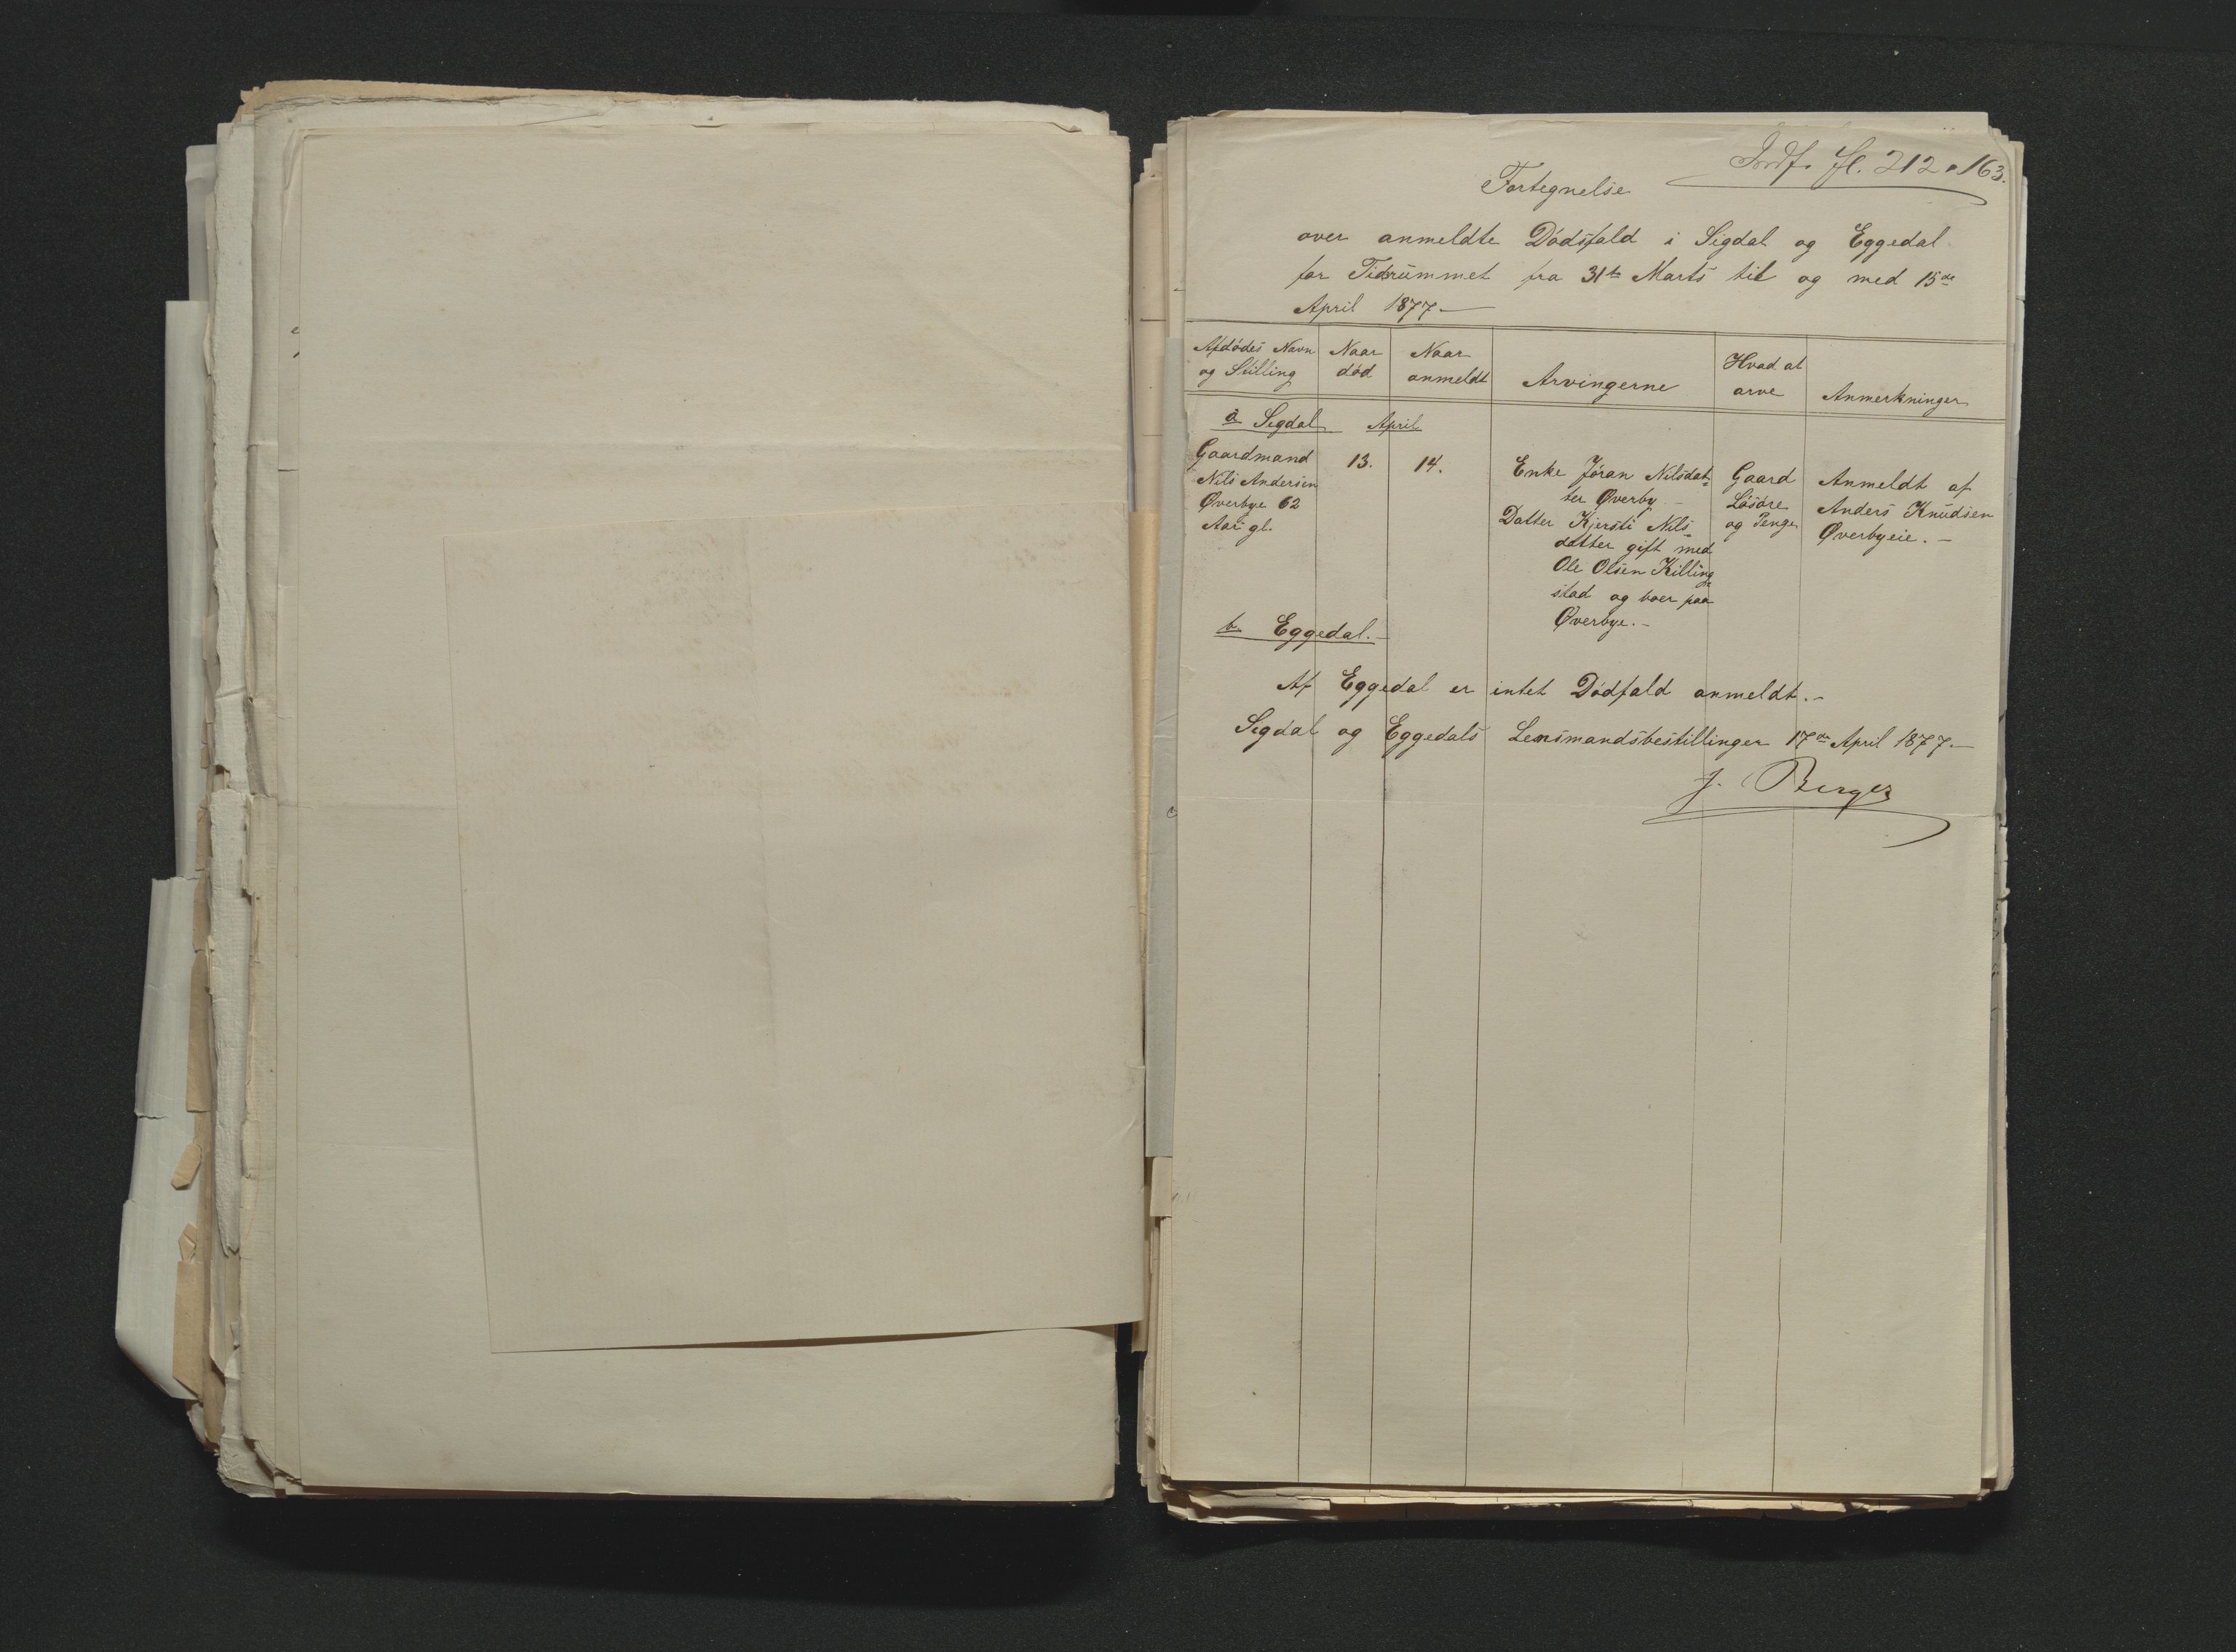 Indf. fl. 212 o 163.
Fortegnelse
over anmeldte Dödsfald i Sigdal og Eggedal
for Tidsrummet fra 31te Marts til og med 15de
April 1877.—
Afdödes Navn og Stilling | Naar död | Naar anmeldt | Arvingerne | Hvad at arve | Anmerkninger
a Sigdal April
Gaardmand 13. 14. Enke Jöran Nilsdat- Gaard Anmeldt af
Nils Andersen ter Øverby – Lösöre Anders Knudsen
Øverbye 62 Datter Kjersti Nils- og Penge Øverbyeie. –
Aar gl. datter gift med
Ole Olsen Killing-
stad og boer paa
Øverbye. –
b Eggedal. –
Af Eggedal er intet Dödfald anmeldt. –
Sigdal og Eggedals Lensmandsbestillinger 17de April 1877. —
J. Berger